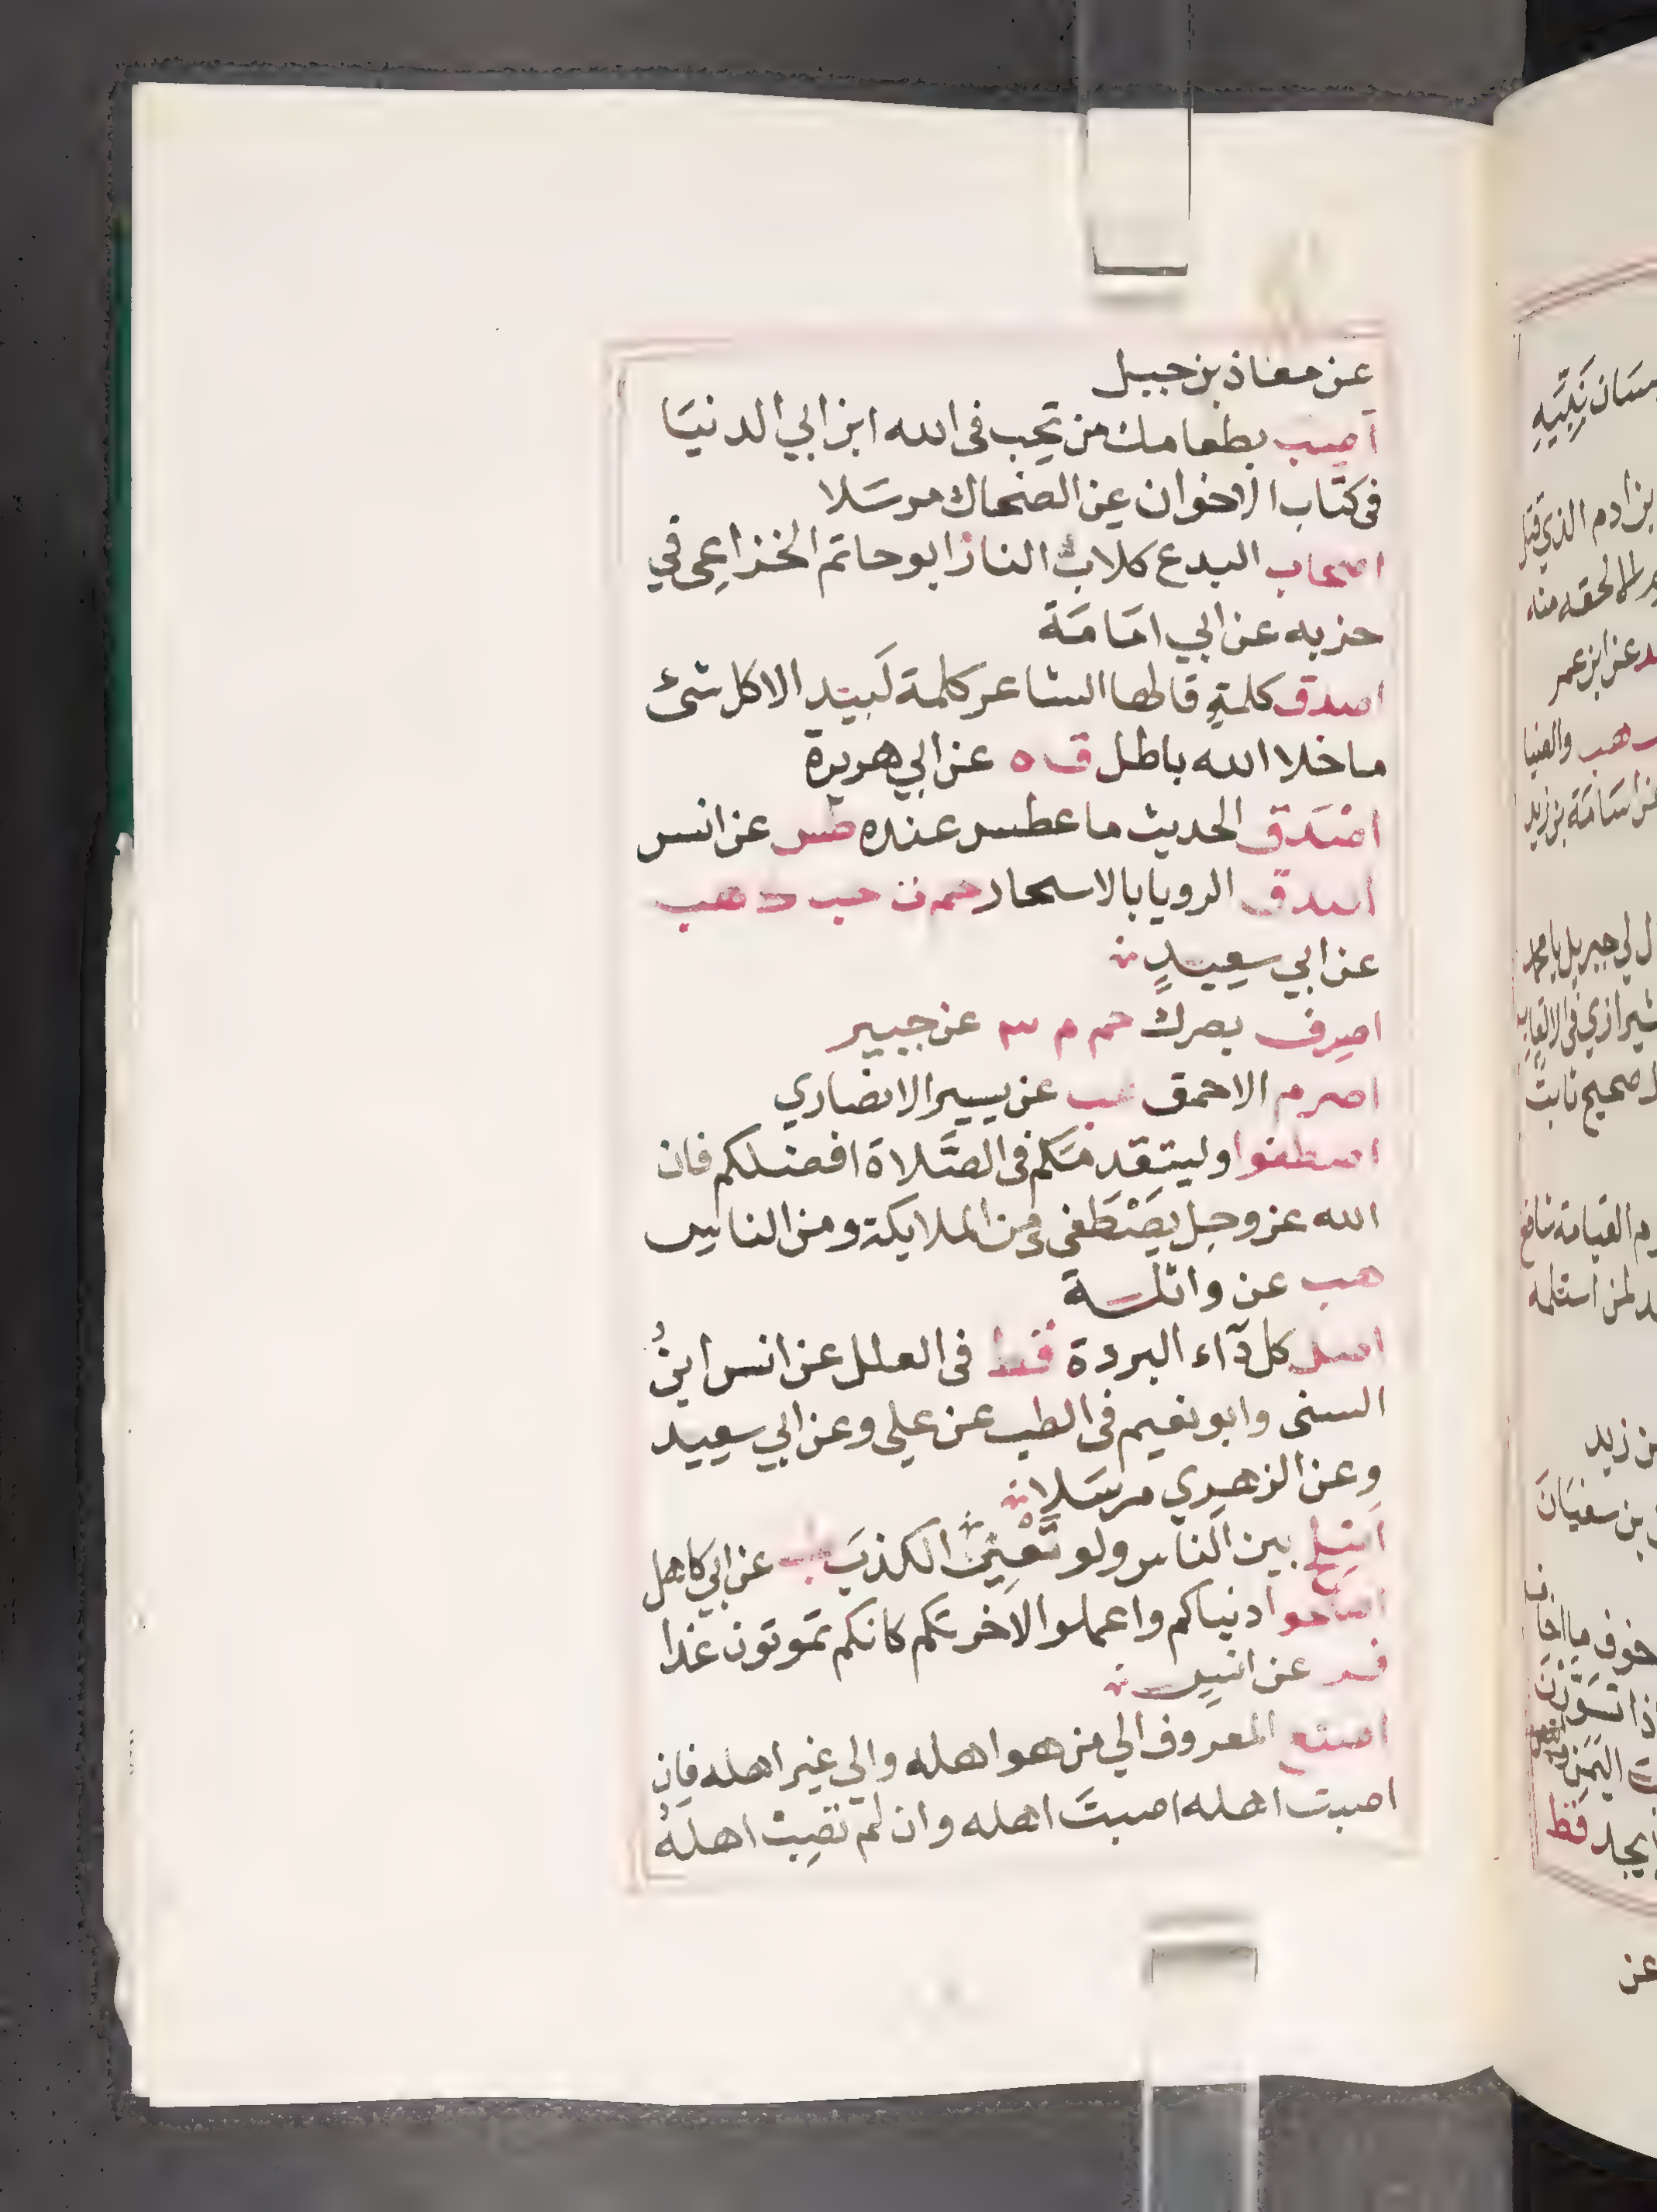 عن معاذ بن جبيل
اصب بطعامك من تحب في الله ابن ابي الدنيا
في كتاب الاخوان عن الضحاك مرسلا
اصحاب البدع كلاب النار ابو حاتم الخزاعي في
حزبه عن ابي امامة
اصدق كلمة قالها الشاعر كلمة لبيد الا كل شئ
ما خلا الله باطل ق ه عن ابي هريرة
اصدق الحديث ما عطس عنده طس عن انس
اصدق الرويا بالاسحار حم ت حب ك هب
عن ابي سعيد
اصرف بصرك حم م عن جبير
اصرم الاحمق هب عن يسير الانصاري
اصطفوا وليتقدمكم في الصلاة افضلكم فان
الله عز وجل يصطفي من الملايكة ومن الناس
هب عن واثلة
اصل كل دآء البردة قط في العلل عن انس ابن
السني وابو نعيم في الطب عن علي وعن ابي سعيد
وعن الزهري مرسلا
اصلح بين الناس ولو تعني الكذب طب عن ابي كاهل
اصلحوا دنياكم واعملوا لاخرتكم كانكم تموتون غدا
فر عن انس
اصنع المعروف الي من هو اهله والي غير اهله فان
اصبت اهله اصبت اهله وان لم تصب اهله
بن ادم الذي قتل
عن ابن عمر
عن اسامة بن زيد
ل لي جبريل يا محمد
شيرازي في الالقاب
صحيح ثابت
لمن استلمه
بن زيد
بن سفيان
يجد قط
عن